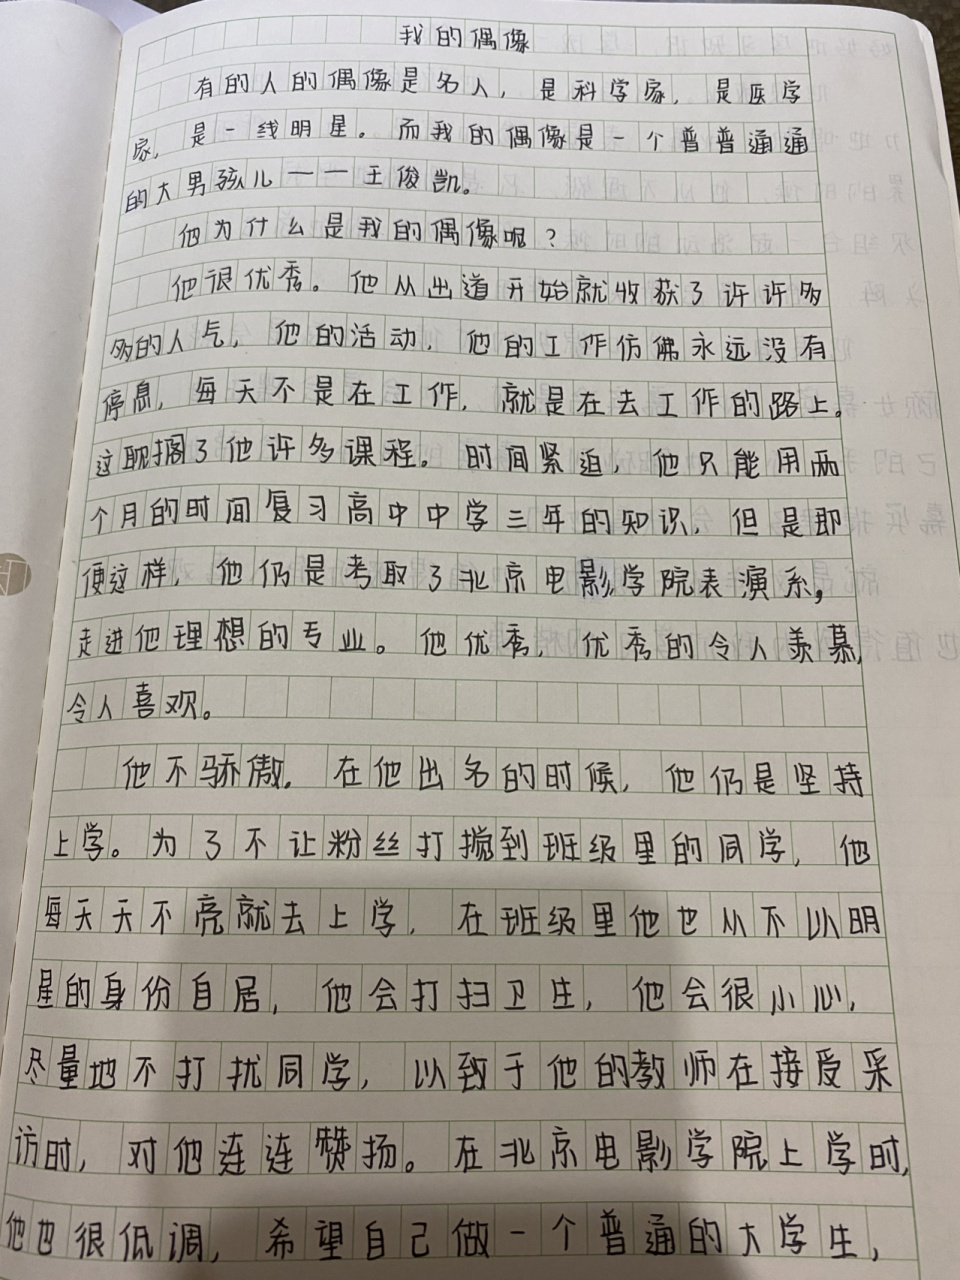 我的偶像
有的人的偶像是名人，是科学家，是医学
家，是一线明星。而我的偶像是一个普普通通
的大男孩儿——王俊凯。
他为什么是我的偶像呢？
他很优秀。他从出道开始就收获了许许多
多的人气，他的活动，他的工作仿佛永远没有
停息，每天不是在工作，就是在去工作的路上。
这耽搁了他许多课程。时间紧迫，他只能用两
个月的时间复习高中中学三年的知识，但是即
便这样，他仍是考取了北京电影学院表演系，
走进他理想的专业。他优秀，优秀的令人羡慕，
令人喜欢。
他不骄傲。在他出名的时候，他仍是坚持
上学。为了不让粉丝打搅到班级里的同学，他
每天天不亮就去上学，在班级里他也从不以明
星的身份自居，他会打扫卫生，他会很小心，
尽量地不打扰同学，以致于他的教师在接受采
访时，对他连连赞扬。在北京电影学院上学时，
他也很低调，希望自己做一个普通的大学生，